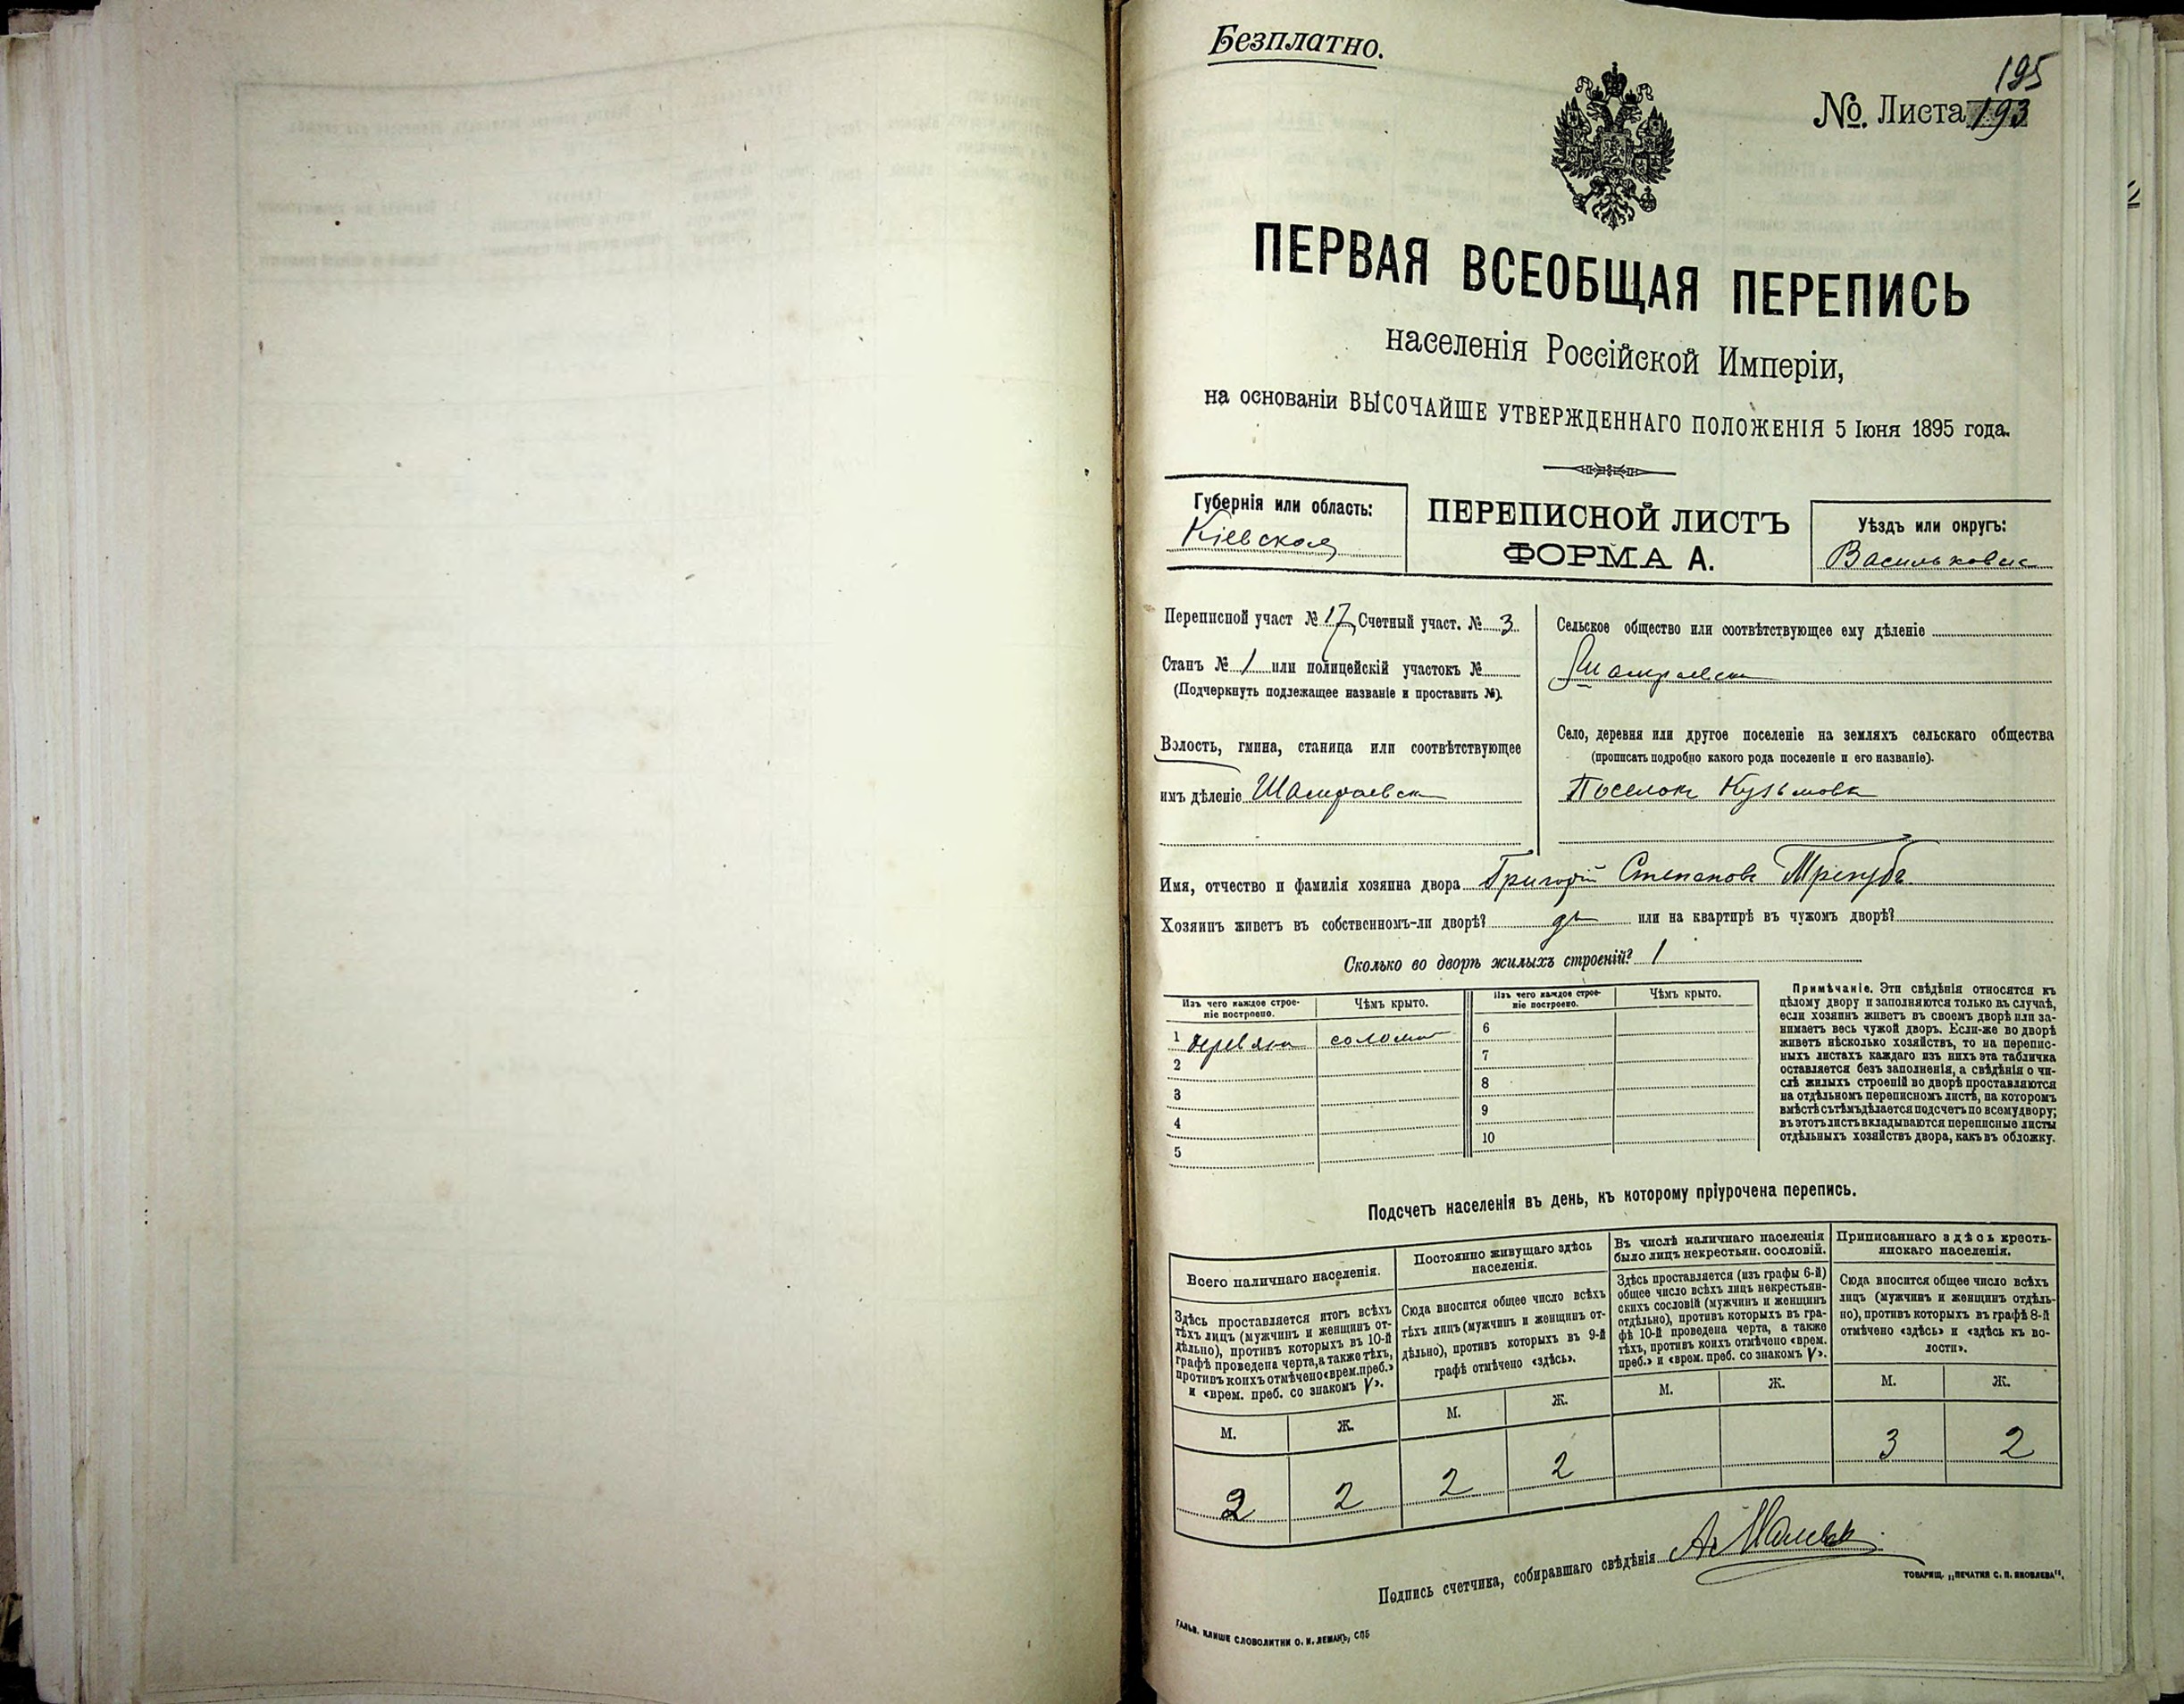 Безплатно.
195
№. Листа 193
ПЕРВАЯ ВСЕОБЩАЯ ПЕРЕПИСЬ
населенія Россійской Имперіи,
на основаніи ВЫСОЧАЙШЕ УТВЕРЖДЕННАГО ПОЛОЖЕНІЯ 5 Іюня 1895 года.
Губернія или область:
Кіевская
ПЕРЕПИСНОЙ ЛИСТЪ
ФОРМА А.
Уѣздъ или округъ:
Васильковск
Переписной участ № 17 Счетный участ. № 3
Станъ № 1 или полицейскій участокъ №
(Подчеркнуть подлежащее названіе и проставить №).
Волость, гмина, станица или соотвѣтствующее
имъ дѣленіе Шамраевск
Сельское общество или соотвѣтствующее ему дѣленіе
Шамраевск
Село, деревня или другое поселеніе на земляхъ сельскаго общества
(прописать подробно какого рода поселеніе и его названіе).
Поселок Кузьмовк
Имя, отчество и фамилія хозяина двора Григорій Степанов
Хозяинъ живетъ въ собственномъ-ли дворѣ? да или на квартирѣ въ чужомъ дворѣ?
Сколько во дворѣ жилыхъ строеній? 1
Изъ чего каждое строе-
ніе построено.
Чѣмъ крыто.
1 деревяна солома
2
3
4
5
Изъ чего каждое строе-
ніе построено.
Чѣмъ крыто.
6
7
8
9
10
Примѣчаніе. Эти свѣдѣнія относятся къ
цѣлому двору и заполняются только въ случаѣ,
если хозяинъ живетъ въ своемъ дворѣ или за-
нимаетъ весь чужой дворъ. Если-же во дворѣ
живетъ нѣсколько хозяйствъ, то на перепис-
ныхъ листахъ каждаго изъ нихъ эта табличка
оставляется безъ заполненія, а свѣдѣнія о чи-
слѣ жилыхъ строеній во дворѣ проставляются
на отдѣльномъ переписномъ листѣ, на которомъ
вмѣстѣ съ тѣмъ дѣлается подсчетъ по всему двору;
въ этотъ листъ вкладываются переписные листы
отдѣльныхъ хозяйствъ двора, какъ въ обложку.
Подсчетъ населенія въ день, къ которому пріурочена перепись.
Всего наличнаго населенія.
Здѣсь проставляется итогъ всѣхъ
тѣхъ лицъ (мужчинъ и женщинъ от-
дѣльно), противъ которыхъ въ 10-й
графѣ проведена черта, а также тѣхъ,
противъ коихъ отмѣчено «врем. преб.»
и «врем. преб. со знакомъ V».
М. Ж.
2 2
Постоянно живущаго здѣсь
населенія.
Сюда вносится общее число всѣхъ
тѣхъ лицъ (мужчинъ и женщинъ от-
дѣльно), противъ которыхъ въ 9-й
графѣ отмѣчено «здѣсь».
М. Ж.
2 2
Въ числѣ наличнаго населенія
было лицъ некрестьян. сословій.
Здѣсь проставляется (изъ графы 6-й)
общее число всѣхъ лицъ некрестьян-
скихъ сословій (мужчинъ и женщинъ
отдѣльно), противъ которыхъ въ гра-
фѣ 10-й проведена черта, а также
тѣхъ, противъ коихъ отмѣчено «врем.
преб.» и «врем. преб. со знакомъ V».
М. Ж.
Приписаннаго здѣсь кресть-
янскаго населенія.
Сюда вносится общее число всѣхъ
лицъ (мужчинъ и женщинъ отдѣль-
но), противъ которыхъ въ графѣ 8-й
отмѣчено «здѣсь» и «здѣсь къ во-
лости».
М. Ж.
3 2
Подпись счетчика, собиравшаго свѣдѣнія
ТОВАРИЩ. „ПЕЧАТНЯ С. П. ЯКОВЛЕВА".
ГАЛЬВ. КЛИШЕ СЛОВОЛИТНИ О. И. ЛЕМАНЪ, СПБ